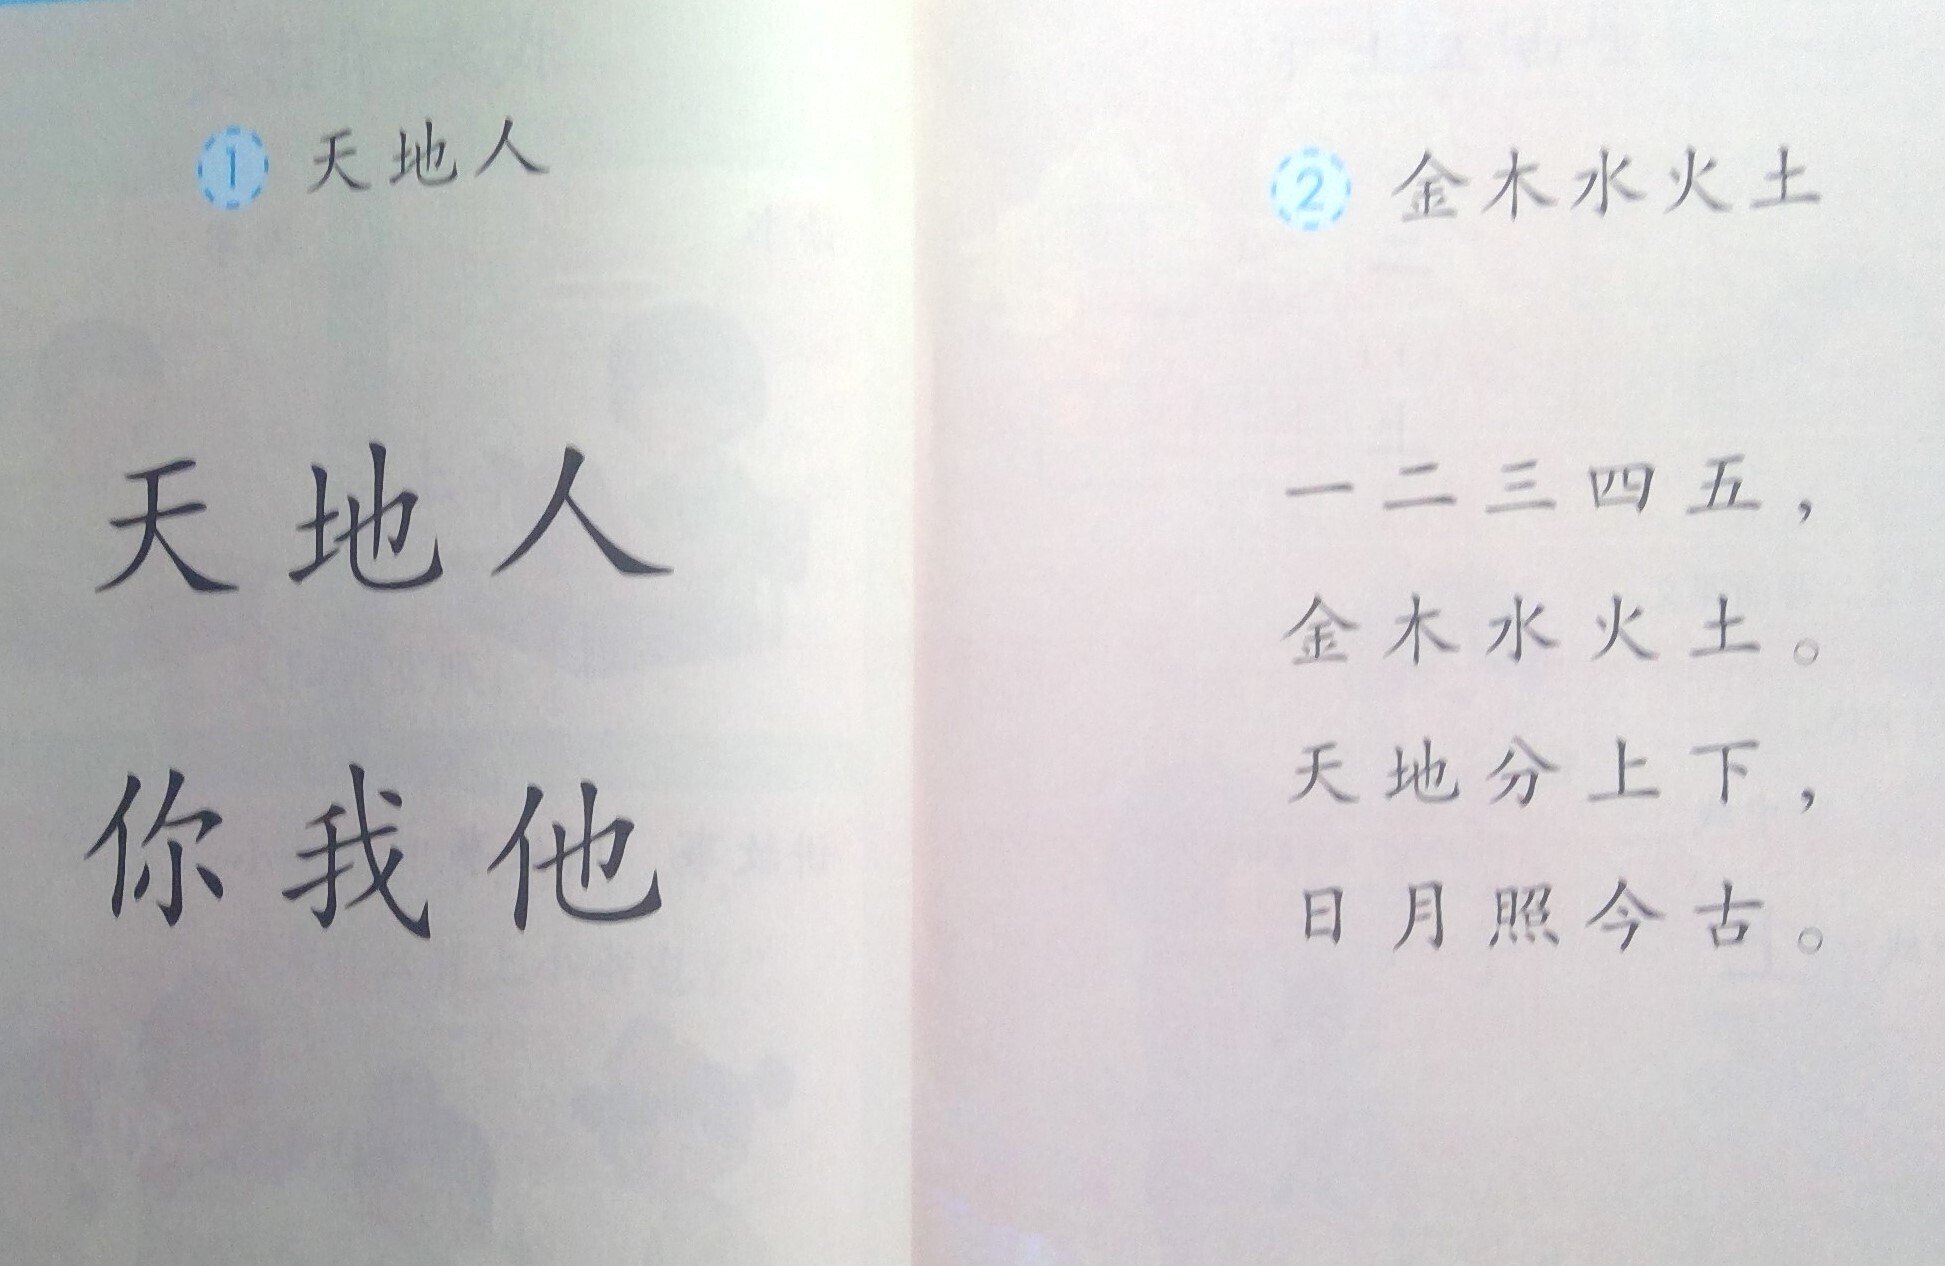 1 天地人
天地人
你我他
2 金木水火土
一二三四五，
金木水火土。
天地分上下，
日月照今古。